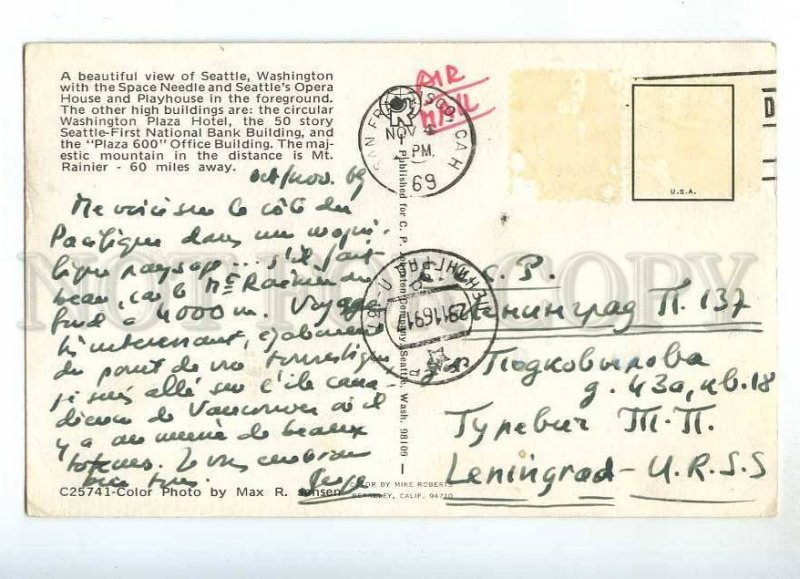 A beautiful view of Seattle, Washington
with the Space Needle and Seattle's Opera
House and Playhouse in the foreground.
The other high buildings are: the circular
Washington Plaza Hotel, the 50 story
Seattle-First National Bank Building, and
the "Plaza 600" Office Building. The maj-
estic mountain in the distance is Mt.
Rainier - 60 miles away.
oct/nov. 69
Me voici sur la côte du
Pacifique dans un magni-
fique paysage... s'il fait
beau, car le Mt Rainier
à 4000 m. Voyage
intéressant,
du point de vue touristique
je suis allé sur l'île cana
dienne de Vancouver où il
y a un musée de beaux
totems. Je vous embrasse
bien tous. Serge
C25741-Color Photo by Max R. Jensen
Published for C. P. Johnston Company, Seattle, Wash. 98109
COLOR BY MIKE ROBERTS
BERKELEY, CALIF. 94710
AIR
MAIL
SAN FRANCISCO, CA
NOV 4
PM
69
U.S.A.
ЛЕНИНГРАД
С.Р.
Ленинград П. 137
Подковырова
д. 43а, кв. 18
Гуревич Т.П.
Leningrad - U.R.S.S
NOT FOR COPY